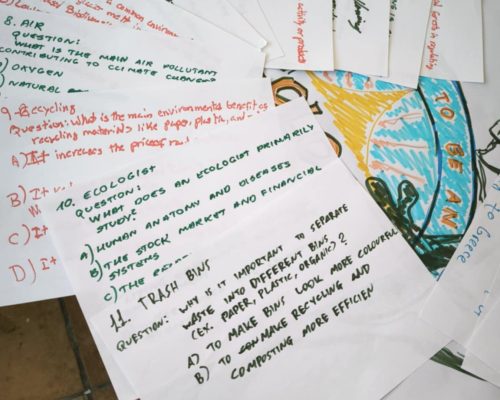 8. AIR
QUESTION:
WHAT IS THE MAIN AIR POLLUTANT
CONTRIBUTING TO CLIMATE CHANGE
OXYGEN
NATURAL
9. Recycling
Question: What is the main environmental benefit of
recycling materials like paper, plastic, and
A) It increases the price of
B) It
C) It
D) It
10. ECOLOGIST
QUESTION:
WHAT DOES AN ECOLOGIST PRIMARILY
STUDY?
A) HUMAN ANATOMY AND DISEASES
B) THE STOCK MARKET AND FINANCIAL
SYSTEMS
C) THE
11. TRASH BINS
QUESTION: WHY IS IT IMPORTANT TO SEPARATE
WASTE INTO DIFFERENT BINS
(EX. PAPER, PLASTIC, ORGANIC)?
A) TO MAKE BINS LOOK MORE COLOURFUL
B) TO MAKE RECYCLING AND
COMPOSTING MORE EFFICIEN
activity or product
TO BE AN
to Greece